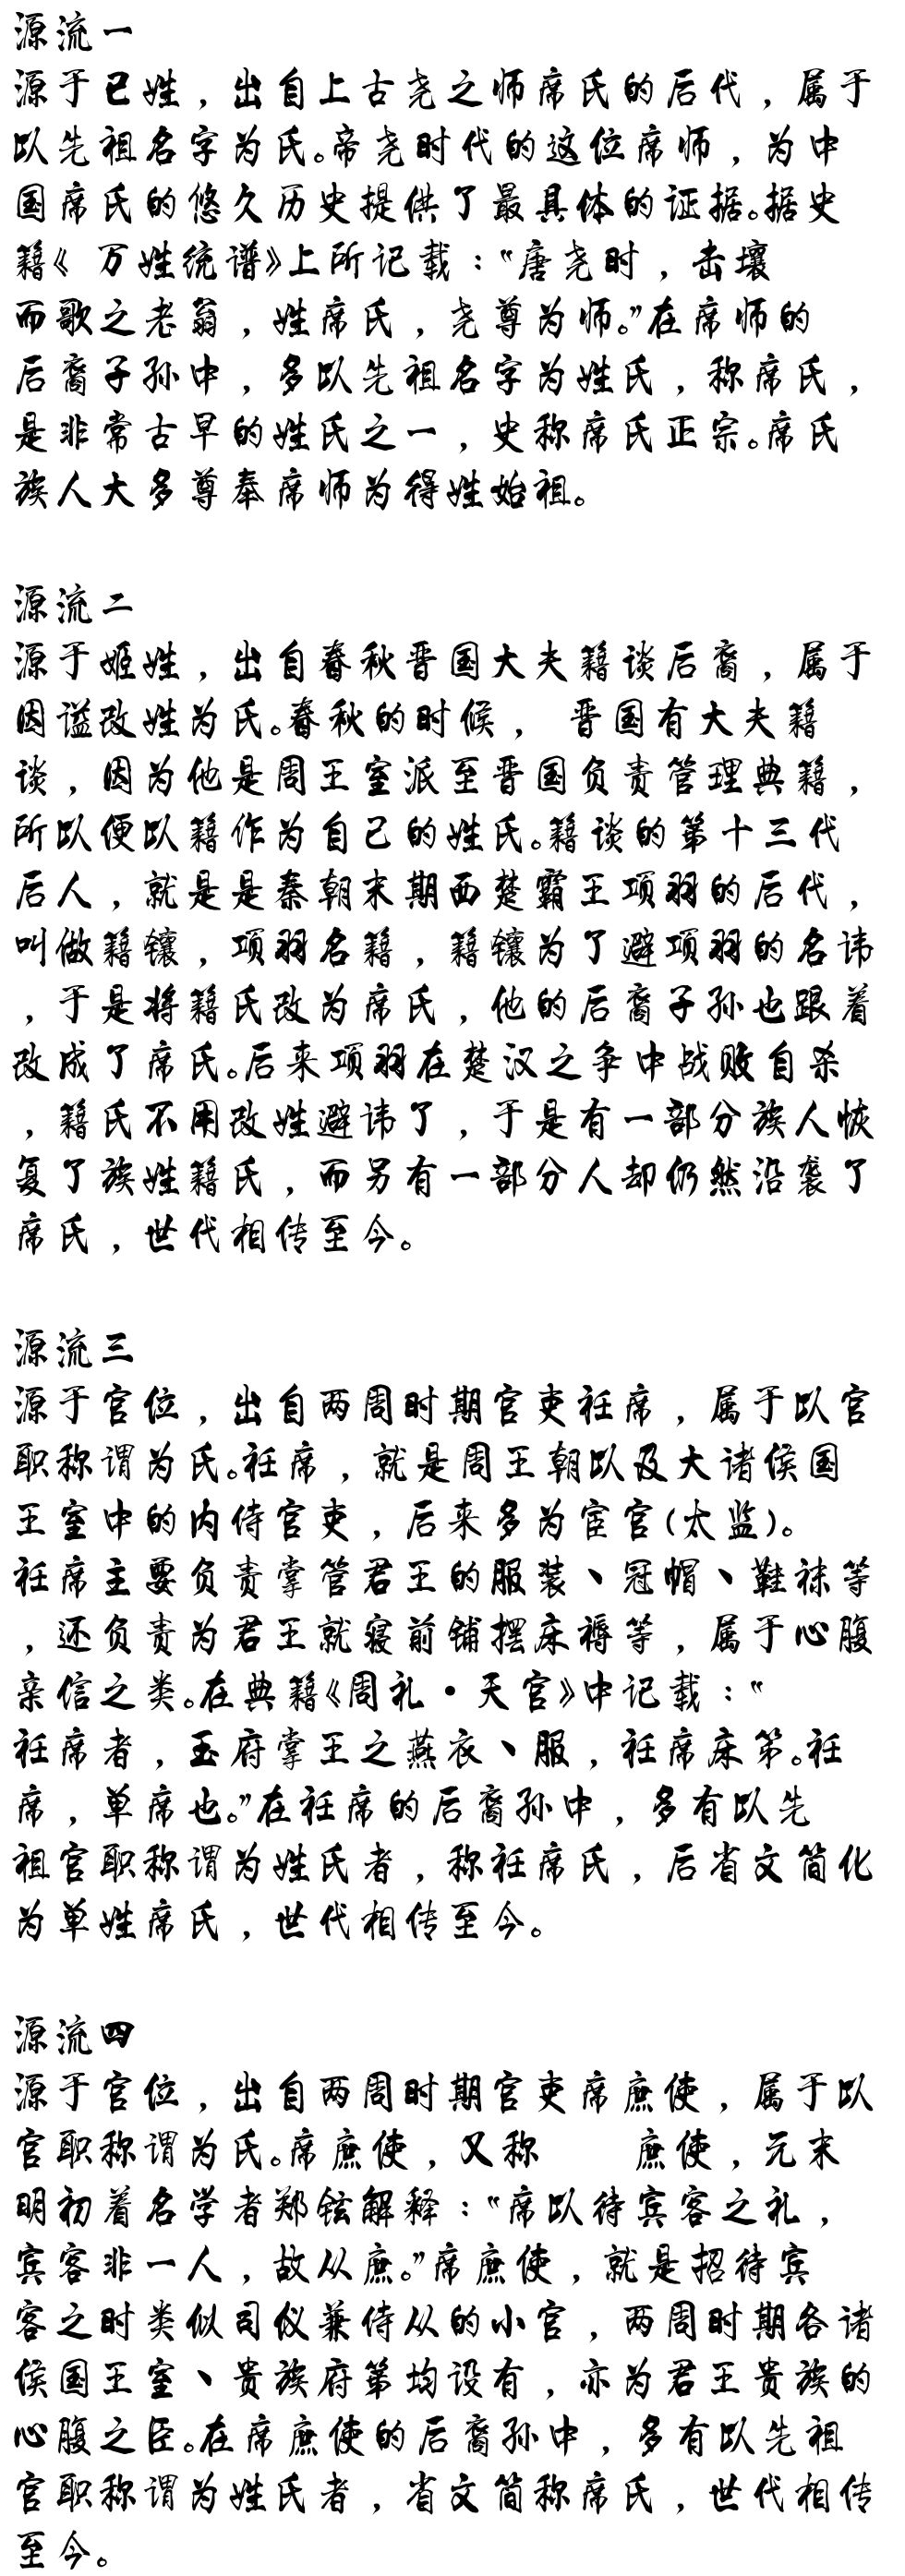 源流一
源于已姓，出自上古尧之师席氏的后代，属于
以先祖名字为氏。帝尧时代的这位席师，为中
国席氏的悠久历史提供了最具体的证据。据史
籍《 万姓统谱》上所记载：“唐尧时，击壤
而歌之老翁，姓席氏，尧尊为师。”在席师的
后裔子孙中，多以先祖名字为姓氏，称席氏，
是非常古早的姓氏之一，史称席氏正宗。席氏
族人大多尊奉席师为得姓始祖。
源流二
源于姬姓，出自春秋晋国大夫籍谈后裔，属于
因谥改姓为氏。春秋的时候， 晋国有大夫籍
谈，因为他是周王室派至晋国负责管理典籍，
所以便以籍作为自己的姓氏。籍谈的第十三代
后人，就是是秦朝末期西楚霸王项羽的后代，
叫做籍镶，项羽名籍，籍镶为了避项羽的名讳
，于是将籍氏改为席氏，他的后裔子孙也跟着
改成了席氏。后来项羽在楚汉之争中战败自杀
，籍氏不用改姓避讳了，于是有一部分族人恢
复了族姓籍氏，而另有一部分人却仍然沿袭了
席氏，世代相传至今。
源流三
源于官位，出自两周时期官吏衽席，属于以官
职称谓为氏。衽席，就是周王朝以及大诸侯国
王室中的内侍官吏，后来多为宦官(太监)。
衽席主要负责掌管君王的服装、冠帽、鞋袜等
，还负责为君王就寝前铺摆床褥等，属于心腹
亲信之类。在典籍《周礼·天官》中记载：“
衽席者，玉府掌王之燕衣、服，衽席床笫。衽
席，单席也。”在衽席的后裔孙中，多有以先
祖官职称谓为姓氏者，称衽席氏，后省文简化
为单姓席氏，世代相传至今。
源流四
源于官位，出自两周时期官吏席庶使，属于以
官职称谓为氏。席庶使，又称　　庶使，元末
明初着名学者郑铉解释：“席以待宾客之礼，
宾客非一人，故从庶。”席庶使，就是招待宾
客之时类似司仪兼侍从的小官，两周时期各诸
侯国王室、贵族府第均设有，亦为君王贵族的
心腹之臣。在席庶使的后裔孙中，多有以先祖
官职称谓为姓氏者，省文简称席氏，世代相传
至今。